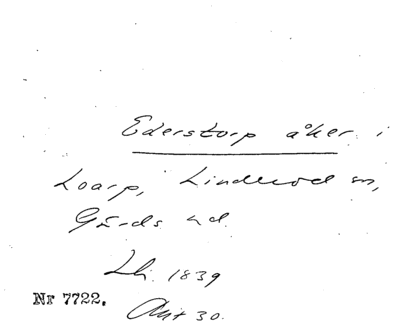 Ederstorp åker i
Loarp, Linderöd sn,
Gärds hd.
Lk. 1839
Nr 7722. Akt 30.